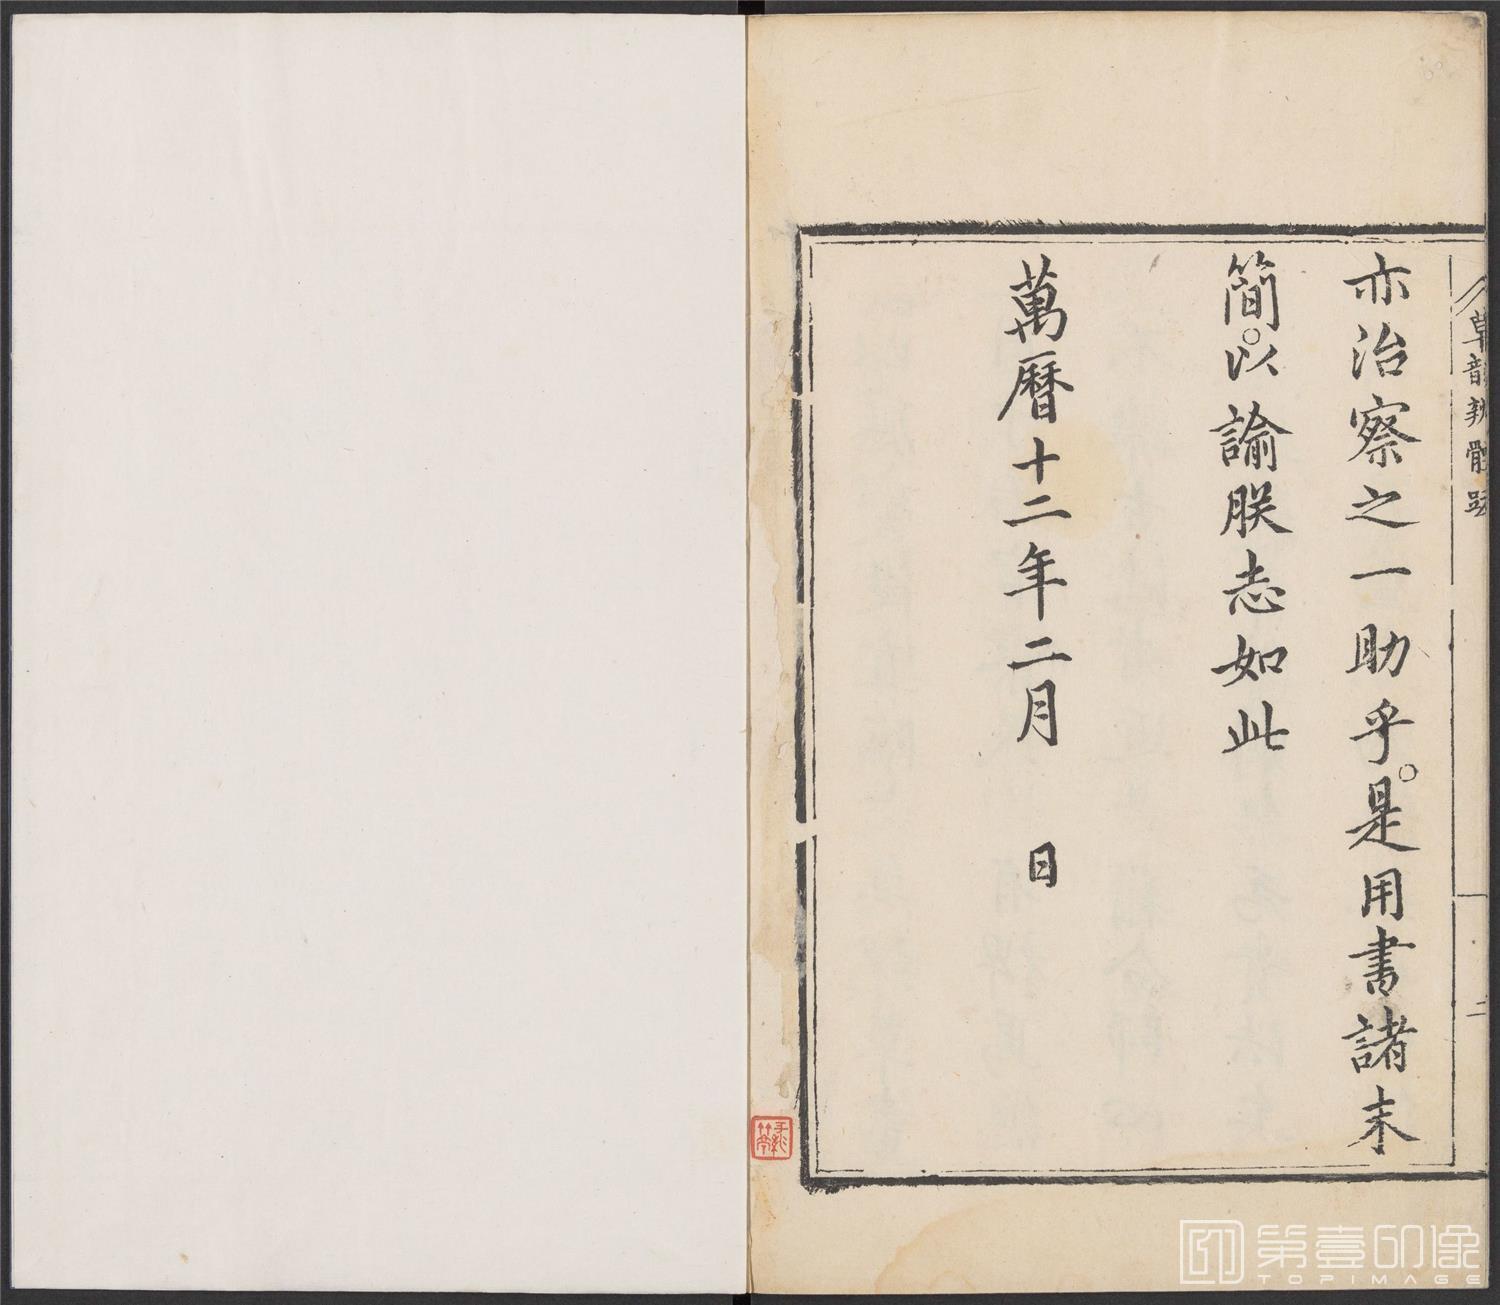 草韻辨體跋
二
亦治察之一助乎。是用書諸末
簡。以諭朕志如此
萬曆十二年二月 日
第壹印像
TOPIMAGE